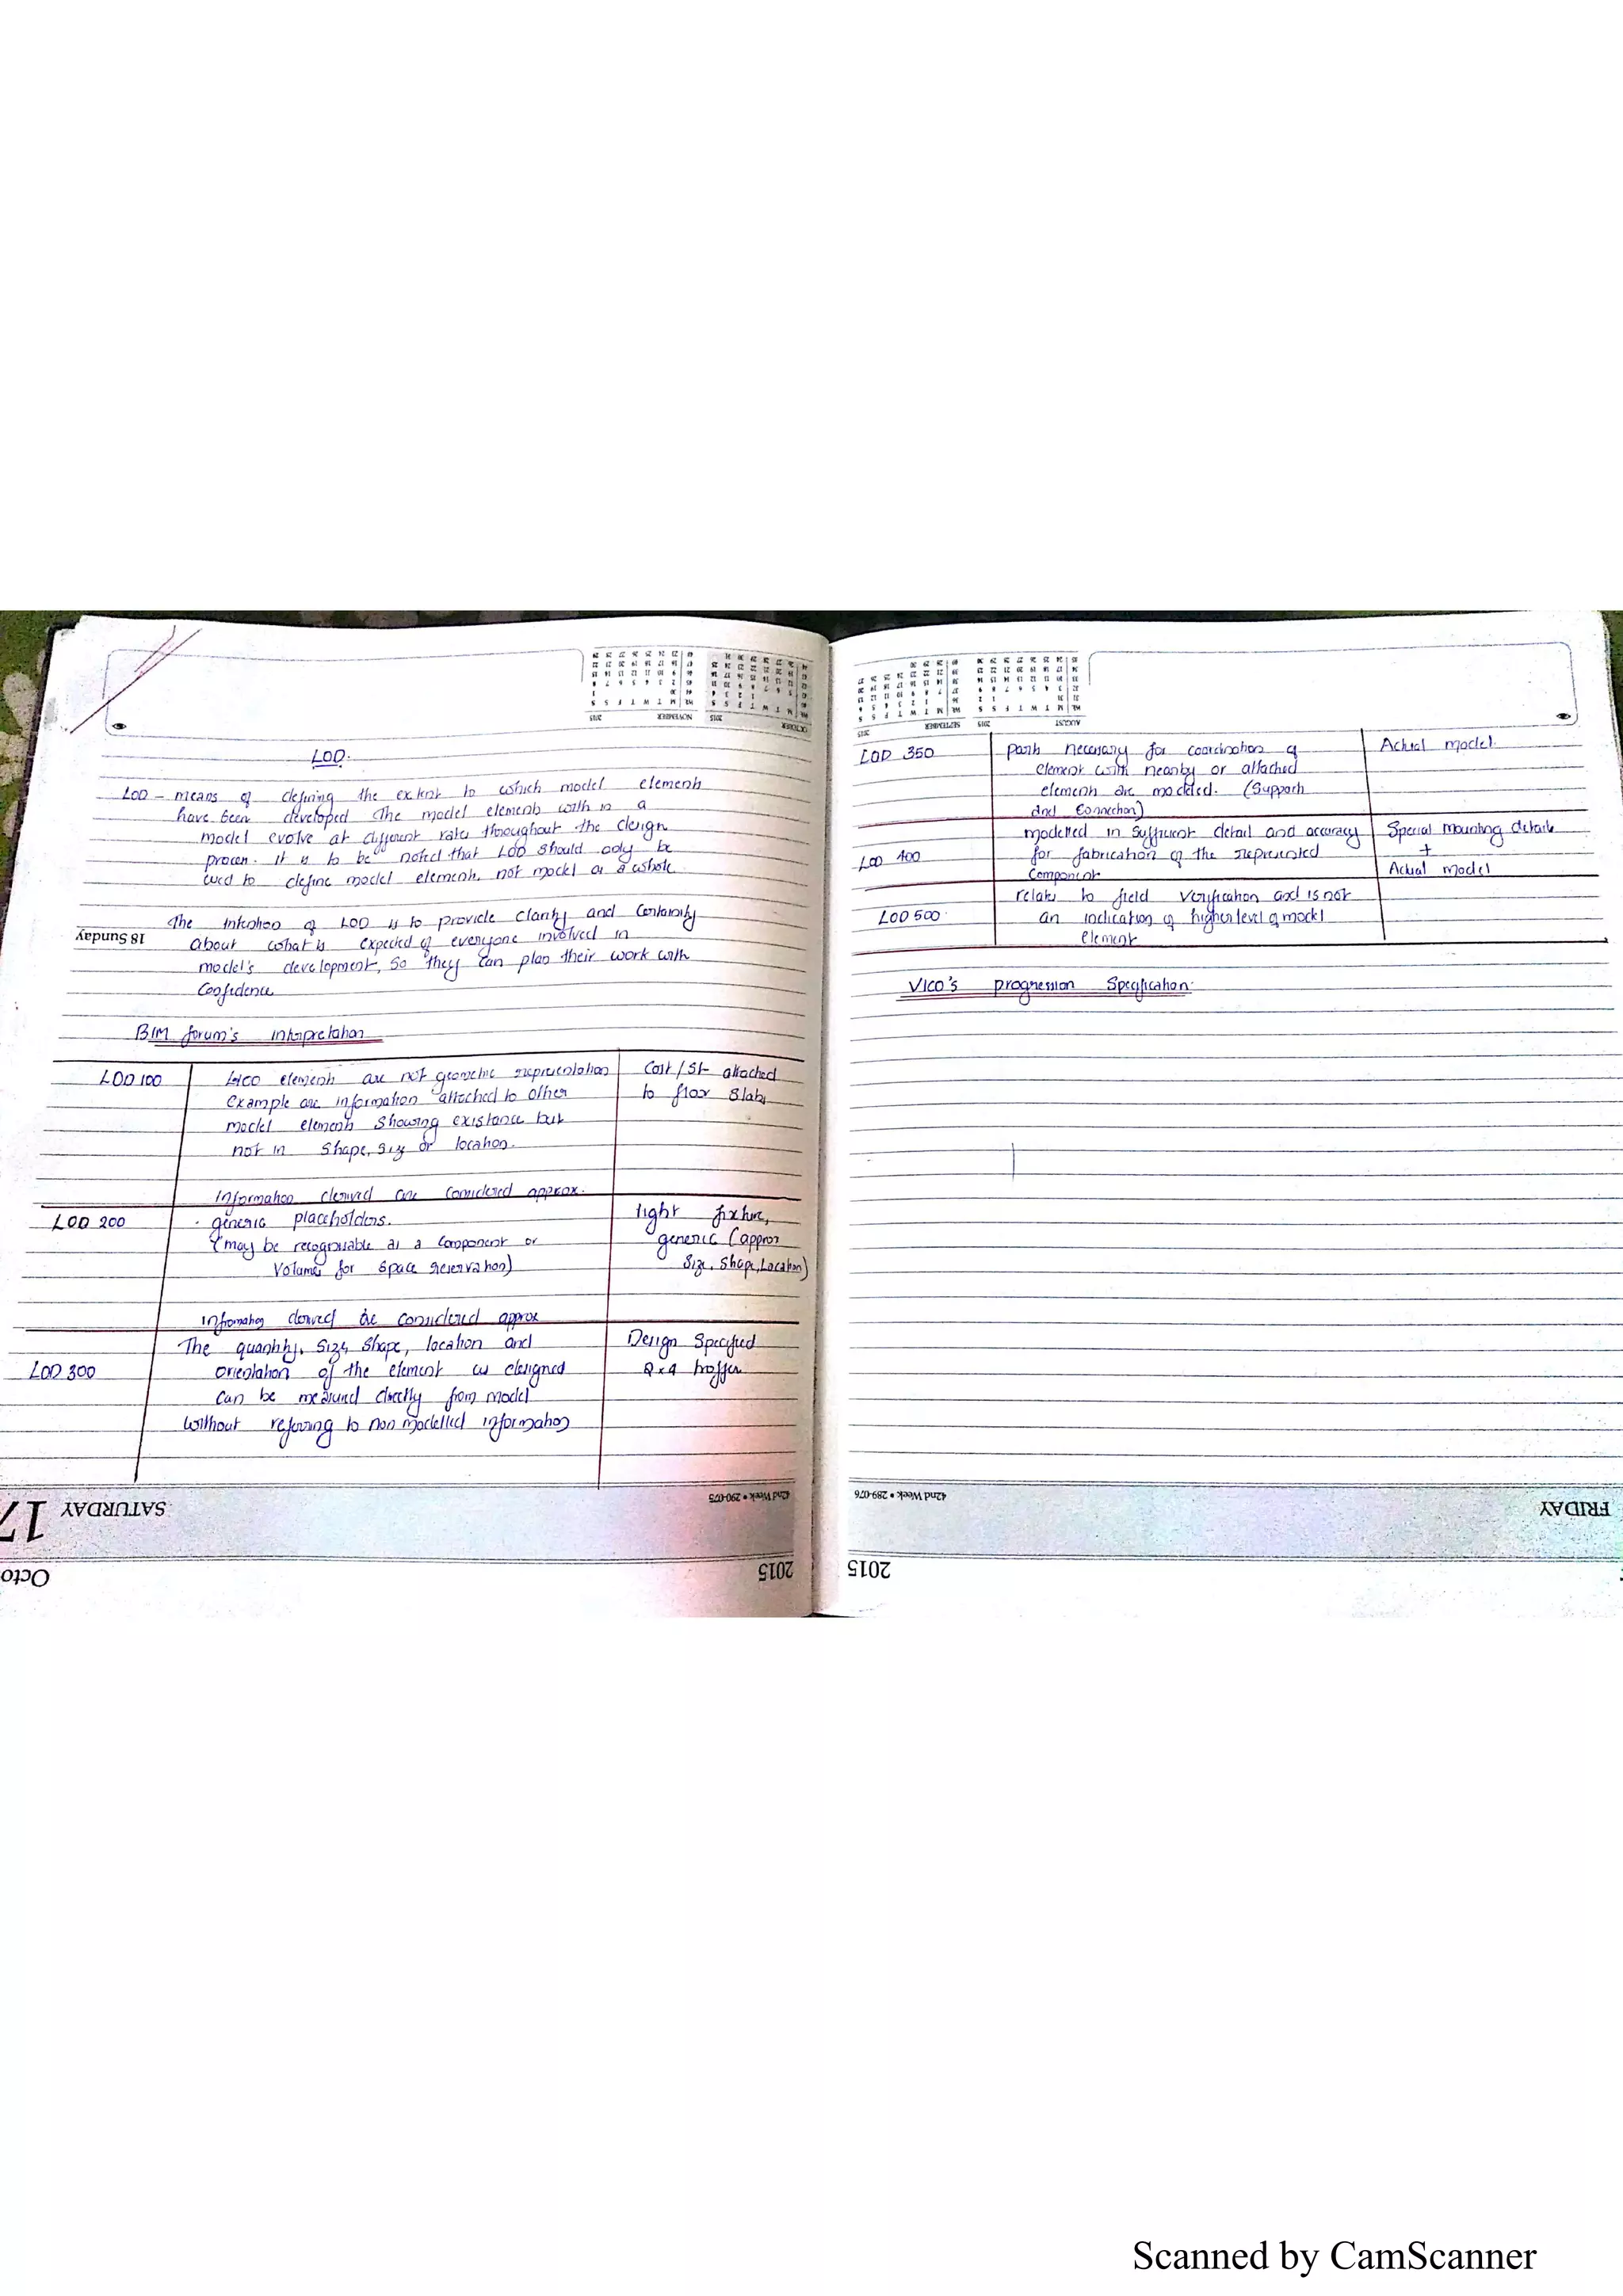 LOD.
LOD - means of defining the extent to which model elements
have been developed The model elements with in a
model evolve at different rates throughout the design
process. it is to be noted that LOD should only be
used to define model elements, not model as a whole
The intention of LOD is to provide clarity and certainity
about what is expected of everyone involved in
model's development, so they can plan their work with
Confidence
18 Sunday
BIM forum's interpretation
LOD 100
elements are not geometric representation
example are information attached to other
model elements showing existance but
not in shape, size or location.
Information derived are considered approx.
Cost / Sf attached
to floor slabs
LOD 200
generic placeholders.
(may be recognisable as a component or
Volumes for space reservation)
Information derived are considered approx
light fixture,
generic (approx
size, shape, Location)
LOD 300
The quantity, size, shape, location and
orientation of the element as designed
can be measured directly from model
without referring to non modelled information
Design specified
2x4 troffer
SATURDAY
17
42nd Week • 290-075
2015
Octo
LOD 350
parts necessary for coordination of
element with nearby or attached
elements are modeled. (Supports
and Connection)
Actual model.
LOD 400
modelled in sufficient detail and accuracy
for fabrication of the represented
Component
Special mounting details
+
Actual model
LOD 500
relates to field verification and is not
an indication of higher level of model
element
VICO'S progression Specification.
42nd Week • 289-076
FRIDAY
2015
Scanned by CamScanner